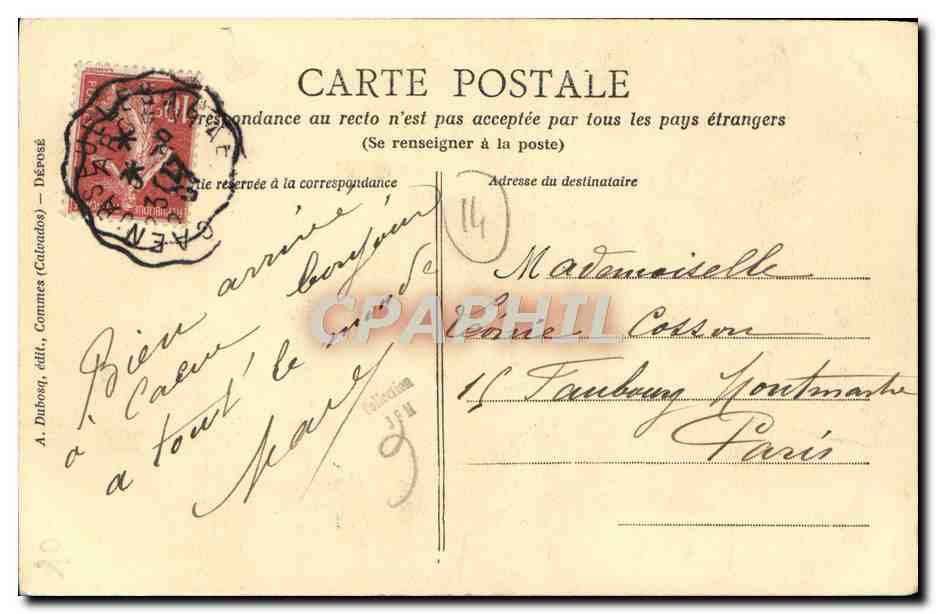 CARTE POSTALE
respondance au recto n'est pas acceptée par tous les pays étrangers
(Se renseigner à la poste)
tie réservée à la correspondance
Adresse du destinataire
A. Dubosq, édit., Commes (Calvados) — DÉPOSÉ
10
CAEN
14
Bien arrivé
à Caen bonjour
a tout le monde
Collection
JFH
Mademoiselle
Léonie Cosson
15 Faubourg Montmartre
Paris
CPAPHIL
20